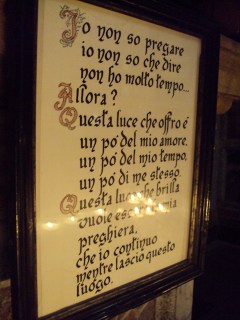 Io non so pregare
io non so che dire
non ho molto tempo...
Allora?
Questa luce che offro é
un pó del mio amore,
un pó del mio tempo,
un pó di me stesso.
Questa luce che brilla
vuole essere mia
preghiera,
che io continuo
mentre lascio questo
luogo.